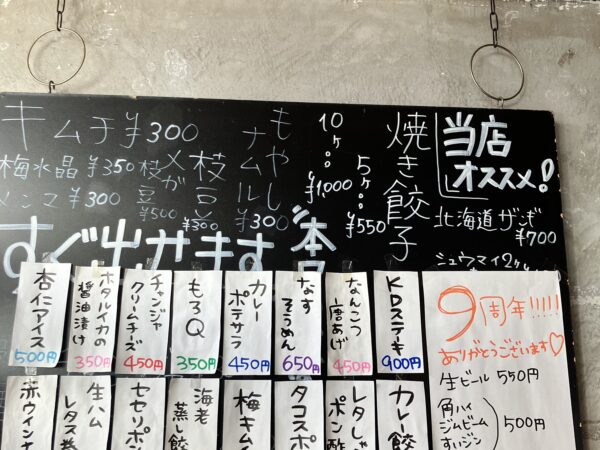 当店
オススメ!
北海道ザンギ
¥700
シュウマイ2ヶ
焼き餃子
5ヶ。。¥550
10ヶ。。¥1,000
もやし
ナムル
¥300
枝豆
¥300
メガ
枝豆
¥500
キムチ ¥300
梅水晶 ¥350
メンマ ¥300
すぐ出せます
KDステーキ
900円
なんこつ
唐あげ
450円
なす
そうめん
650円
カレー
ポテサラ
450円
もろQ
350円
チャンジャ
クリームチーズ
450円
ホタルイカの
醤油漬け
350円
杏仁アイス
500円
カレー餃
レタしゃ
ポン酢
タコスポ
梅キムイ
海老
蒸し餃
セセリポン
生ハム
レタス巻
赤ウインナ
9周年!!!!!
ありがとうございます♡
生ビール 550円
角ハイ
ジムビーム
すいジン
500円